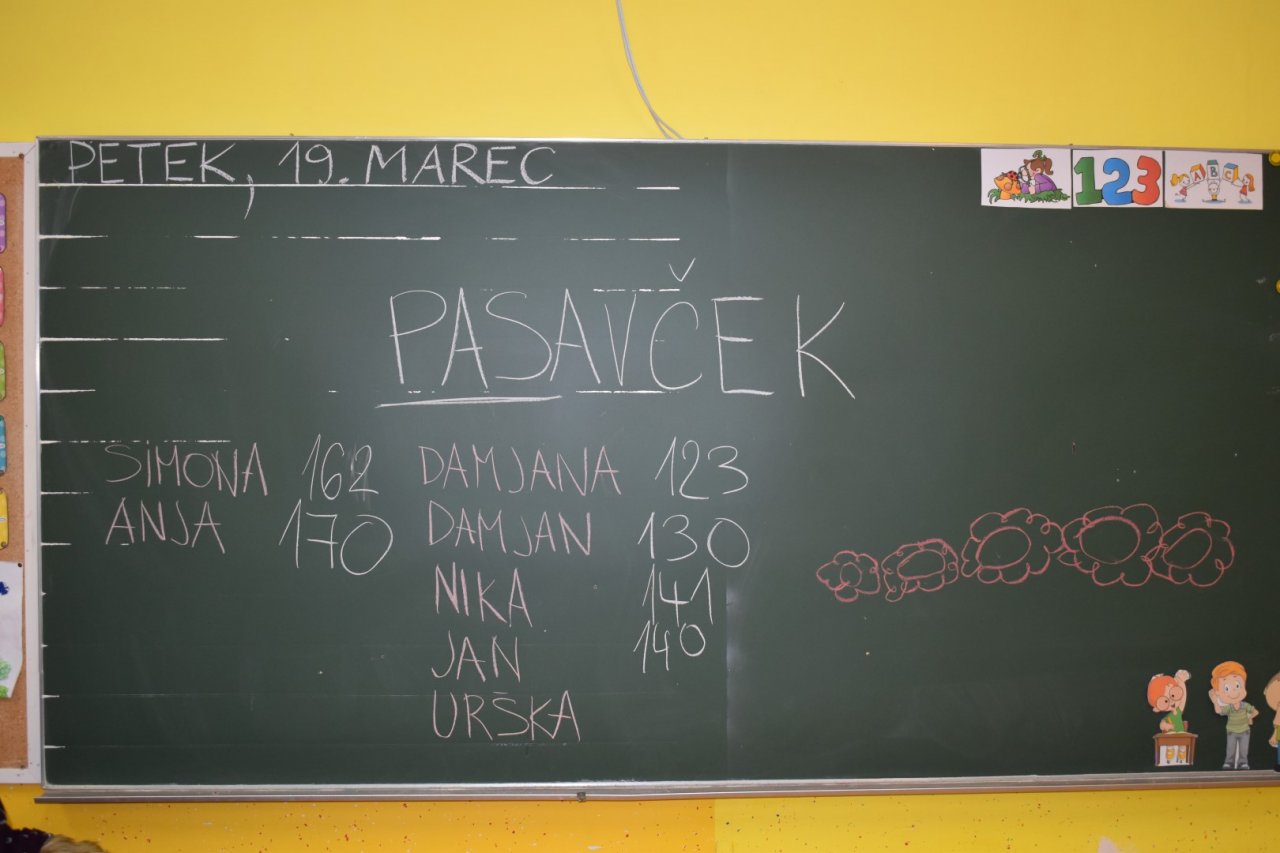 PETEK, 19. MAREC
123
ABC
PASAVČEK
SIMONA 162 DAMJANA 123
ANJA 170 DAMJAN 130
NIKA 141
JAN 140
URŠKA